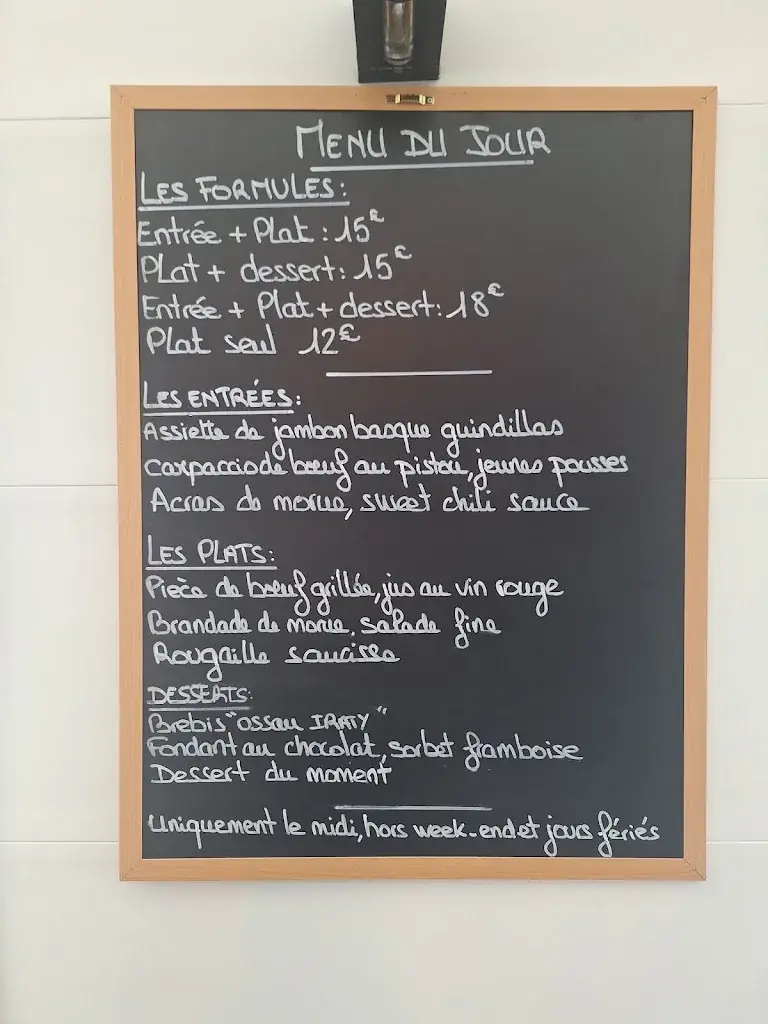 MENU DU JOUR
LES FORMULES:
Entrée + Plat : 15€
Plat + dessert: 15€
Entrée + Plat + dessert: 18€
Plat seul 12€
LES ENTRÉES:
Assiette de jambon basque guindillas
Carpaccio de bœuf au pistou, jeunes pousses
Acras de morue, sweet chili sauce
LES PLATS:
Pièce de bœuf grillée, jus au vin rouge
Brandade de morue, salade fine
Rougaille saucisse
DESSERTS:
Brebis "ossau IRATY"
Fondant au chocolat, sorbet framboise
Dessert du moment
Uniquement le midi, hors week-end et jours fériés